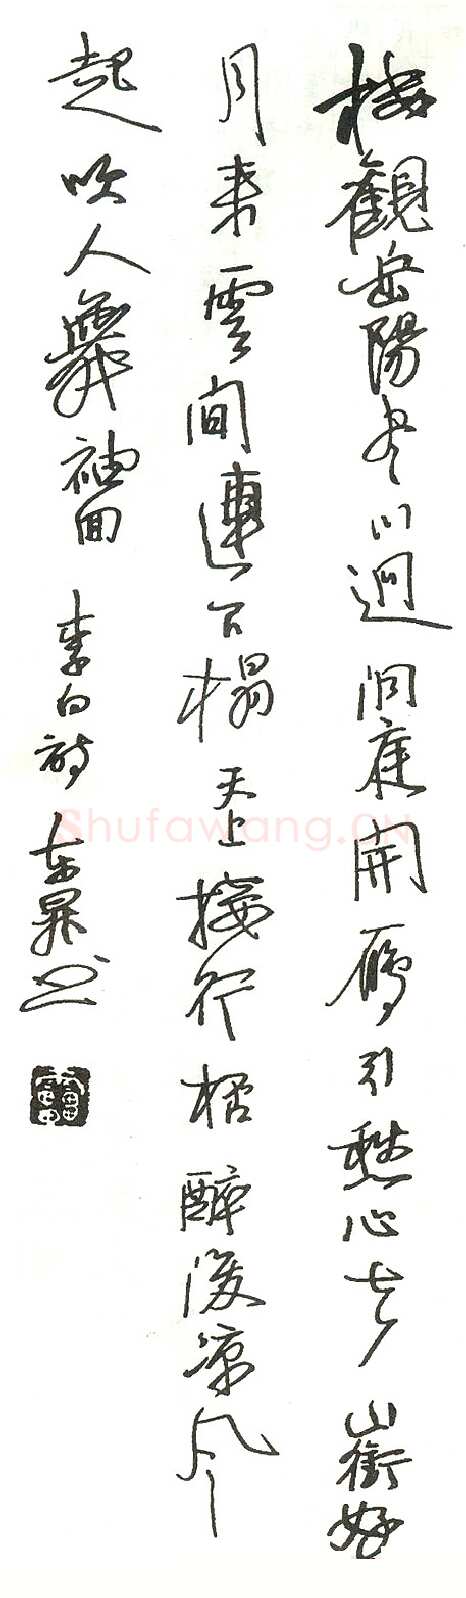 樓觀岳陽盡川迥洞庭開鴈引愁心去山銜好
月来雲間連下榻天上接行桮醉後凉風
起吹人舞袖回 李白詩 東昇书
Shufawang.CN